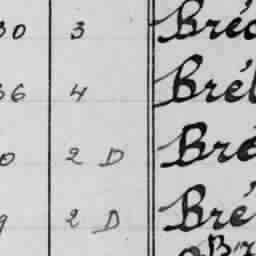 30 3 Bréc
36 4 Brél
0 2 D Bré
9 2 D Bré
Br